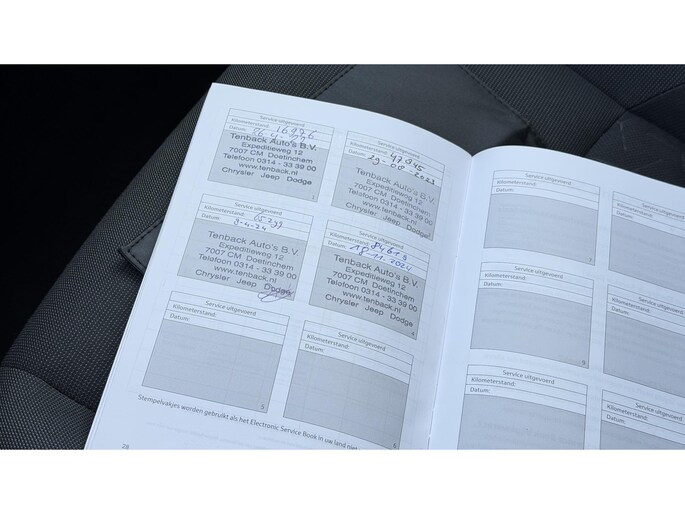 Service uitgevoerd
Kilometerstand: 16976
Datum:
Tenback Auto's B.V.
Expeditieweg 12
7007 CM Doetinchem
Telefoon 0314 - 33 39 00
www.tenback.nl
Chrysler Jeep Dodge
1
Service uitgevoerd
Kilometerstand: 47945
Datum: 29-08-2023
Tenback Auto's B.V.
Expeditieweg 12
7007 CM Doetinchem
Telefoon 0314 - 33 39 00
www.tenback.nl
Chrysler Jeep Dodge
Service uitgevoerd
Kilometerstand:
Datum: 9-4-24
Tenback Auto's B.V.
Expeditieweg 12
7007 CM Doetinchem
Telefoon 0314 - 33 39 00
www.tenback.nl
Chrysler Jeep Dodge
Service uitgevoerd
Kilometerstand: 84619
Datum: 18-11-2024
Tenback Auto's B.V.
Expeditieweg 12
7007 CM Doetinchem
Telefoon 0314 - 33 39 00
www.tenback.nl
Chrysler Jeep Dodge
4
Service uitgevoerd
Kilometerstand:
Datum:
5
Service uitgevoerd
Kilometerstand:
Datum:
6
Stempelvakjes worden gebruikt als het Electronic Service Book in uw land niet
Service uitgevoerd
Kilometerstand:
Datum:
7
Service uitgevoerd
Kilometerstand:
Datum:
Service uitgevoerd
Kilometerstand:
Datum:
Kilometerstand:
Datum:
Service
Kilometerstand:
Datum:
Kilometerstand:
Datum: